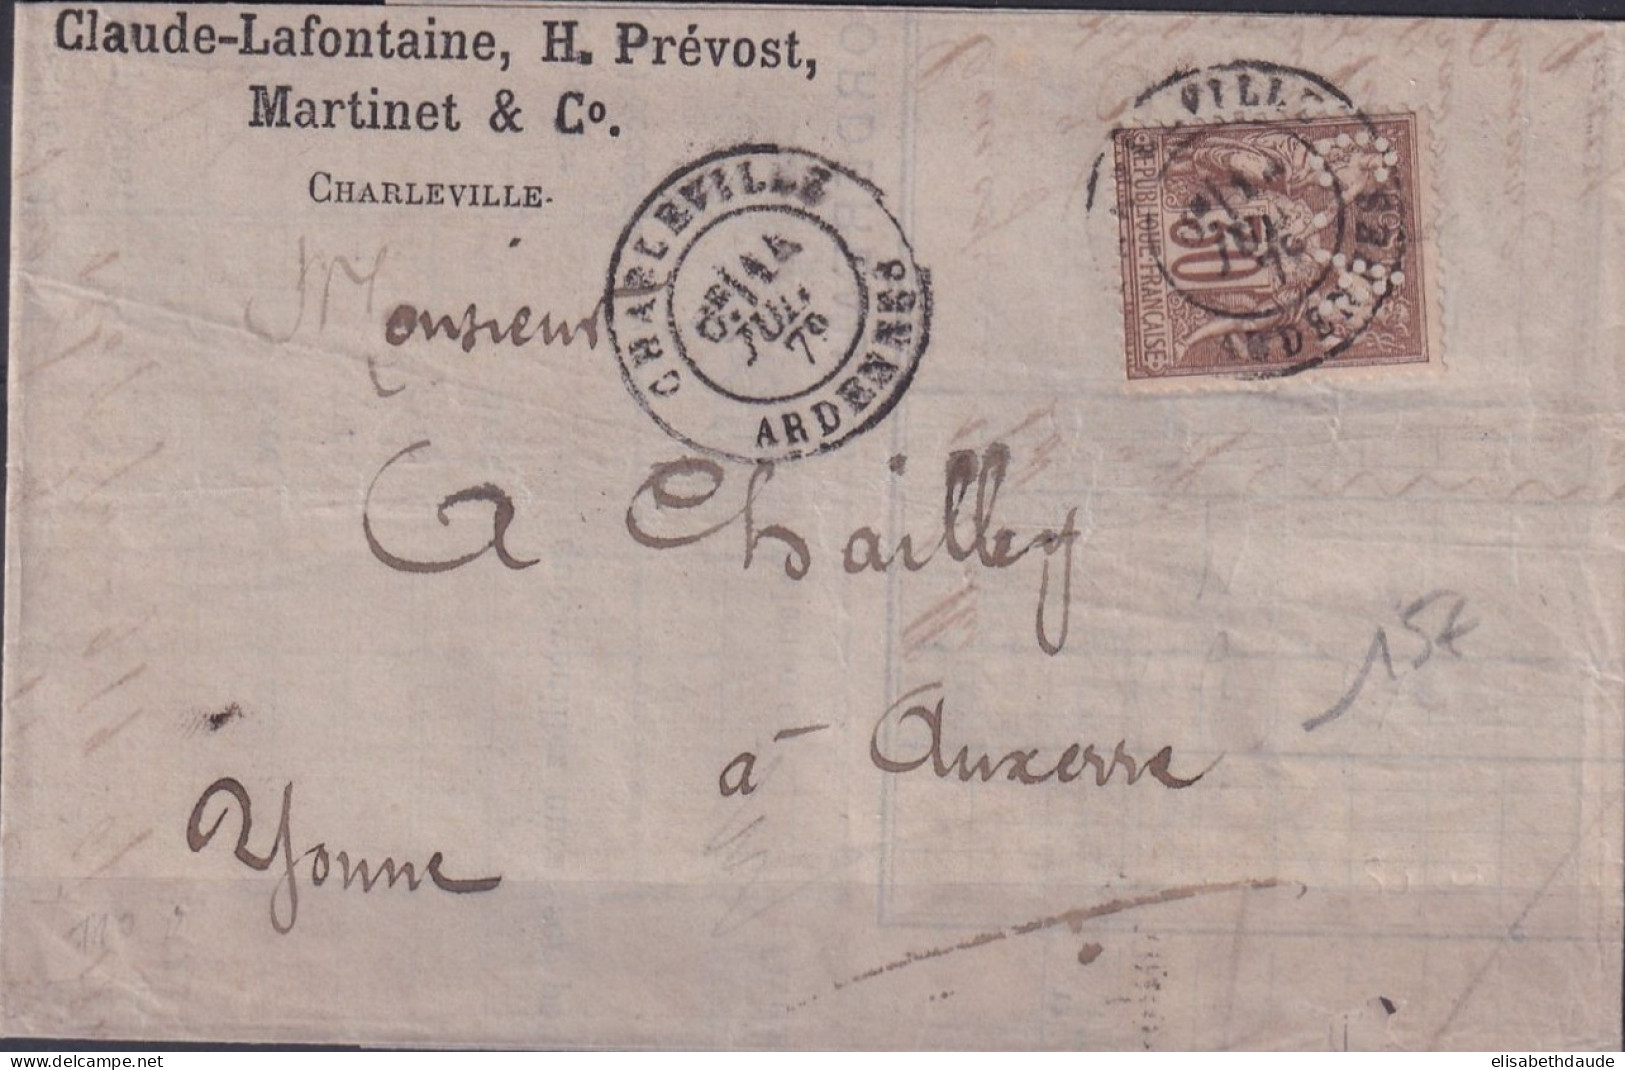 Claude-Lafontaine, H. Prévost,
Martinet & Co.
CHARLEVILLE.
Monsieur
CHARLEVILLE
14
JUIL.
78
ARDENNES
VILLE
JUIL
ARDENNES
REPUBLIQUE FRANÇAISE
30
A Chailley
15€
à Auxerre
Yonne
delcampe.net
elisabethdaude